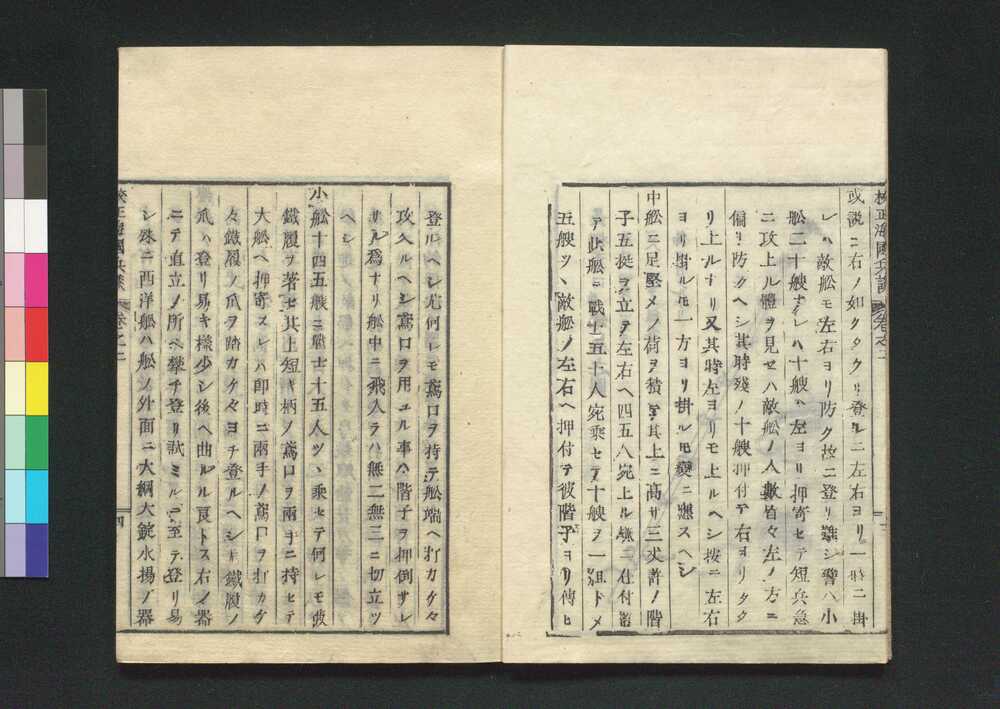 校正海國兵談 卷之二
或説ニ右ノ如クタクリ登ルニ左右ヨリ一拼ニ掛
レハ敵舩モ左右ヨリ防ク故ニ登リ難シ譬ハ小
舩二十艘ナレハ十艘ハ左ヨリ押寄セテ短兵急
ニ攻上ル體ヲ見セハ敵舩ノ人數皆々左ノ方ニ
偏リ防クヘシ其時殘ノ十艘押付テ右ヨリタク
リ上ルナリ又其時左ヨリモ上ルヘシ按ニ左右
ヨリ掛ルモ一方ヨリ掛ルモ變ニ應スヘシ
中舩ニ足堅メノ荷ヲ積テ其上ニ高サ三丈許ノ階
子五挺ヲ立テ左右ヘ四五人宛上ル様ニ仕付置
テ此舩ニ戰士五十人宛乗セテ十艘ヲ一組トメ
五艘ツヽ敵舩ノ左右ヘ押付テ彼階子ヨリ傳ヒ
登ルヘシ尤何レモ鳶口ヲ持テ舩端ヘ打カケ々
攻入ルヘシ鳶口ヲ用ユル事ハ階子ヲ押倒サレ
サル爲ナリ舩中ニ飛入ラハ無二無三ニ切立ツ
ヘシ
小舩十四五艘ニ戰士十五人ツヽ乗セテ何レモ彼
鐵履ヲ著セ其上短キ柄ノ鳶口ヲ兩手ニ持セテ
大舩ヘ押寄スレハ即時ニ兩手ノ鳶口ヲ打カケ
々鐵履ノ爪ヲ踏カケ々ヨチ登ルヘシ鐵履ノ
爪ハ登リ易キ様少シ後ヘ曲ルヲ良トス右ノ器
ニテ直立ノ所ヘ攀チ登リ試ミルニ至テ登リ易
シ殊ニ西洋舩ハ舩ノ外面ニ大綱大錠水揚ノ器
校正海國兵談 卷之二 四